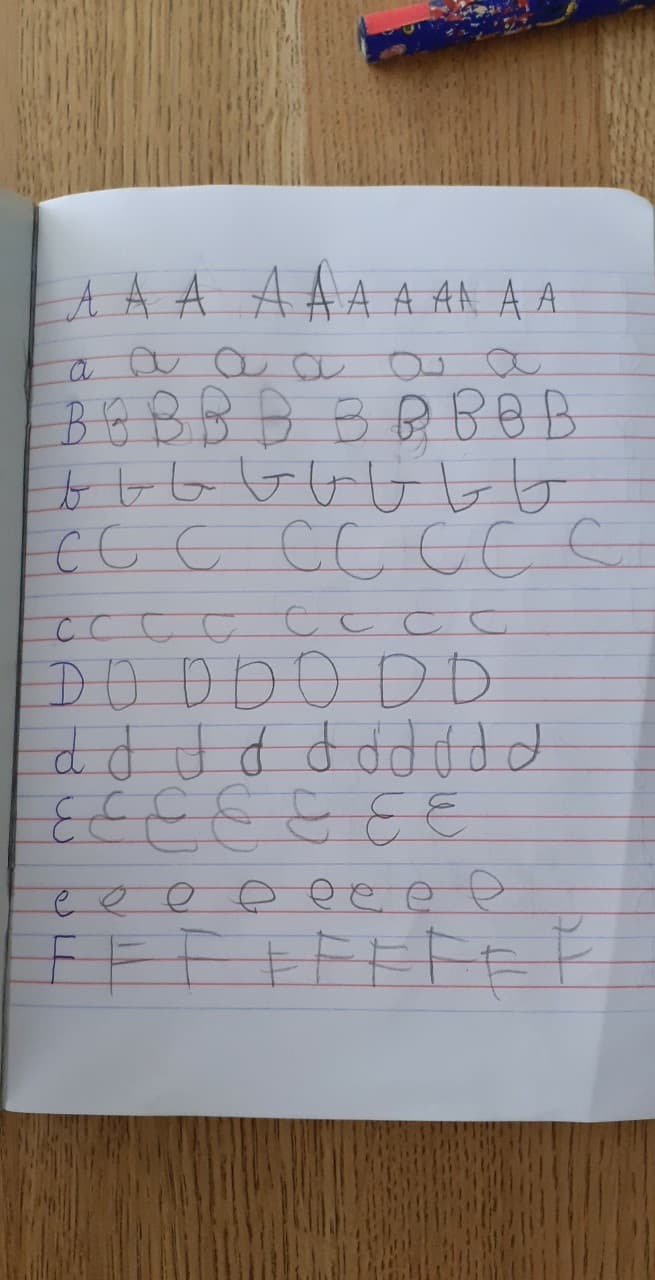 A A A A A A A A A A A
a a a a a a
B B B B B B B B B B
b b b b b b b b
C C C C C C C C
c c c c c c c c
D D D D D D D
d d d d d d d d d d
E E E E E E E
e e e e e e e e
F F F F F F F F F